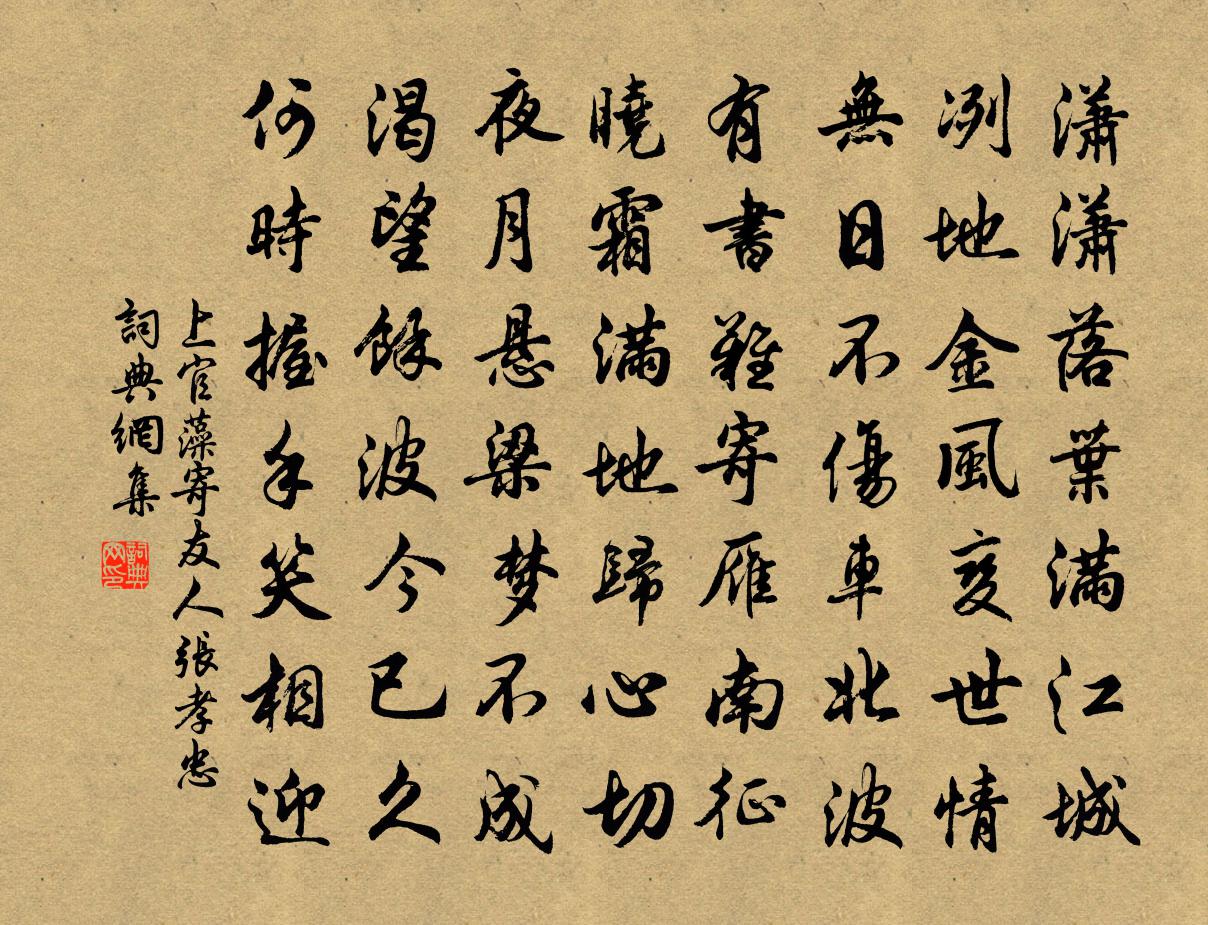 瀟瀟落葉滿江城
冽地金風變世情
無日不傷車北波
有書難寄雁南征
曉霜滿地歸心切
夜月懸梁夢不成
渴望餘波今已久
何時握手笑相迎
上官藻寄友人張孝忠
詞典網集